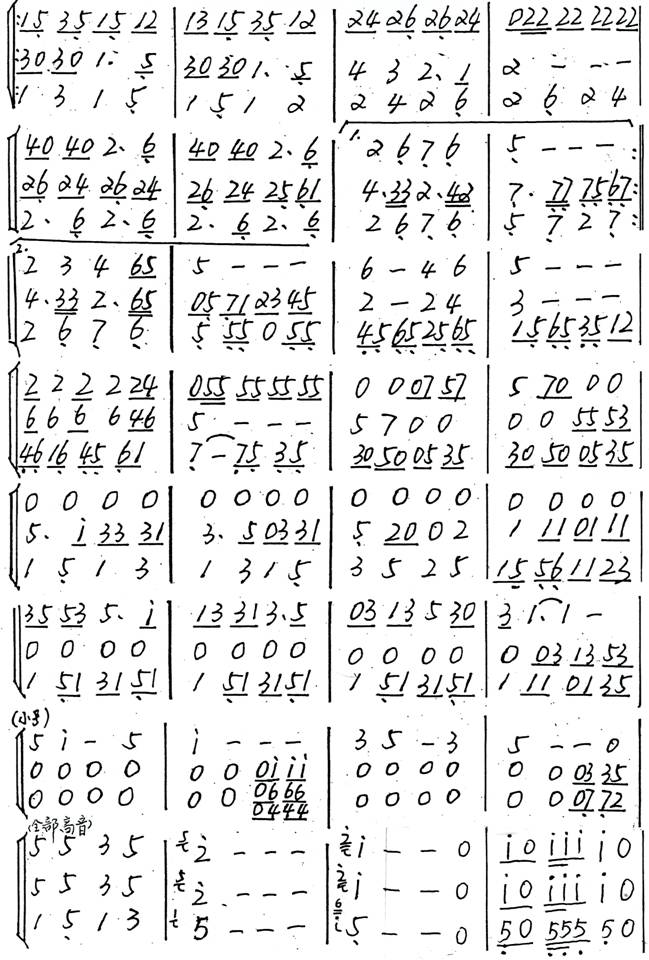 15 35 15 12 | 13 15 35 12 | 24 26 26 24 | 022 22 22 22
30 30 1· 5 | 30 30 1· 5 | 4 3 2· 1 | 2 - - -
1 3 1 5 | 1 5 1 2 | 2 4 2 6 | 2 6 2 4
40 40 2· 6 | 40 40 2· 6 | 1. 2 6 7 6 | 5 - - - :
26 24 26 24 | 26 24 25 61 | 4·33 2·42 | 7·77 75 67 :
2· 6 2· 6 | 2· 6 2· 6 | 2 6 7 6 | 5 7 2 7 :
2. 2 3 4 65 | 5 - - - | 6 - 4 6 | 5 - - -
4·33 2·65 | 05 71 23 45 | 2 - 2 4 | 3 - - -
2 6 7 6 | 5 55 0 55 | 45 65 25 65 | 15 65 35 12
2 2 2 2 24 | 055 55 55 55 | 0 0 07 57 | 5 70 0 0
6 6 6 6 46 | 5 - - - | 5 7 0 0 | 0 0 55 53
46 16 45 61 | 7 - 75 35 | 30 50 05 35 | 30 50 05 35
0 0 0 0 | 0 0 0 0 | 0 0 0 0 | 0 0 0 0
5· i 33 31 | 3· 5 03 31 | 5 20 0 2 | 1 11 01 11
1 5 1 3 | 1 3 1 5 | 3 5 2 5 | 15 56 11 23
35 53 5· i | 13 31 3·5 | 03 13 5 30 | 3 1· 1 -
0 0 0 0 | 0 0 0 0 | 0 0 0 0 | 0 03 13 53
1 51 31 51 | 1 51 31 51 | 1 51 31 51 | 1 11 01 35
(小号)
5 i - 5 | i - - - | 3 5 - 3 | 5 - - 0
0 0 0 0 | 0 0 0i ii | 0 0 0 0 | 0 0 03 35
0 0 0 0 | 0 0 06 66 | 0 0 0 0 | 0 0 07 72
04 44
(全部高音)
5 5 3 5 | 5 2 - - - | 2 i - - 0 | i0 iii i0
5 5 3 5 | 5 2 - - - | 2 i - - 0 | i0 iii i0
1 5 1 3 | 1 5 - - - | 6 i 5 - - 0 | 50 555 50